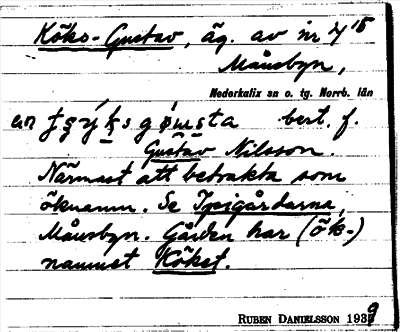 Köks-Gustav, äg. av nr 4¹⁵
Månsbyn,
Nederkalix sn o. tg. Norrb. län
best. f.
Gustav Nilsson.
Närmast att betrakta som
öknamn. Se Ipsigårdarna,
Månsbyn. Gården har (ök-)
namnet Köket.
RUBEN DANIELSSON 1939